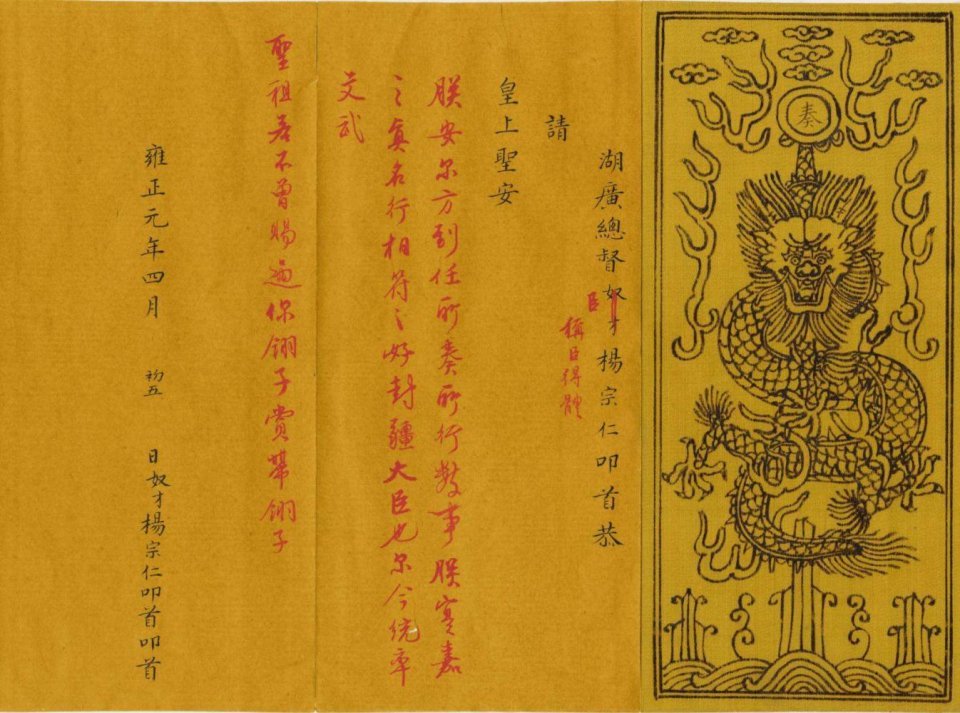 奏
湖廣總督奴才楊宗仁叩首恭
臣
稱臣得體
請
皇上聖安
朕安尔方到任所奏所行数事朕寔嘉
之真名行相符之好封疆大臣也尔今统率
文武
聖祖若不曾賜過你翎子賞帶翎子
雍正元年四月 初五 日奴才楊宗仁叩首叩首